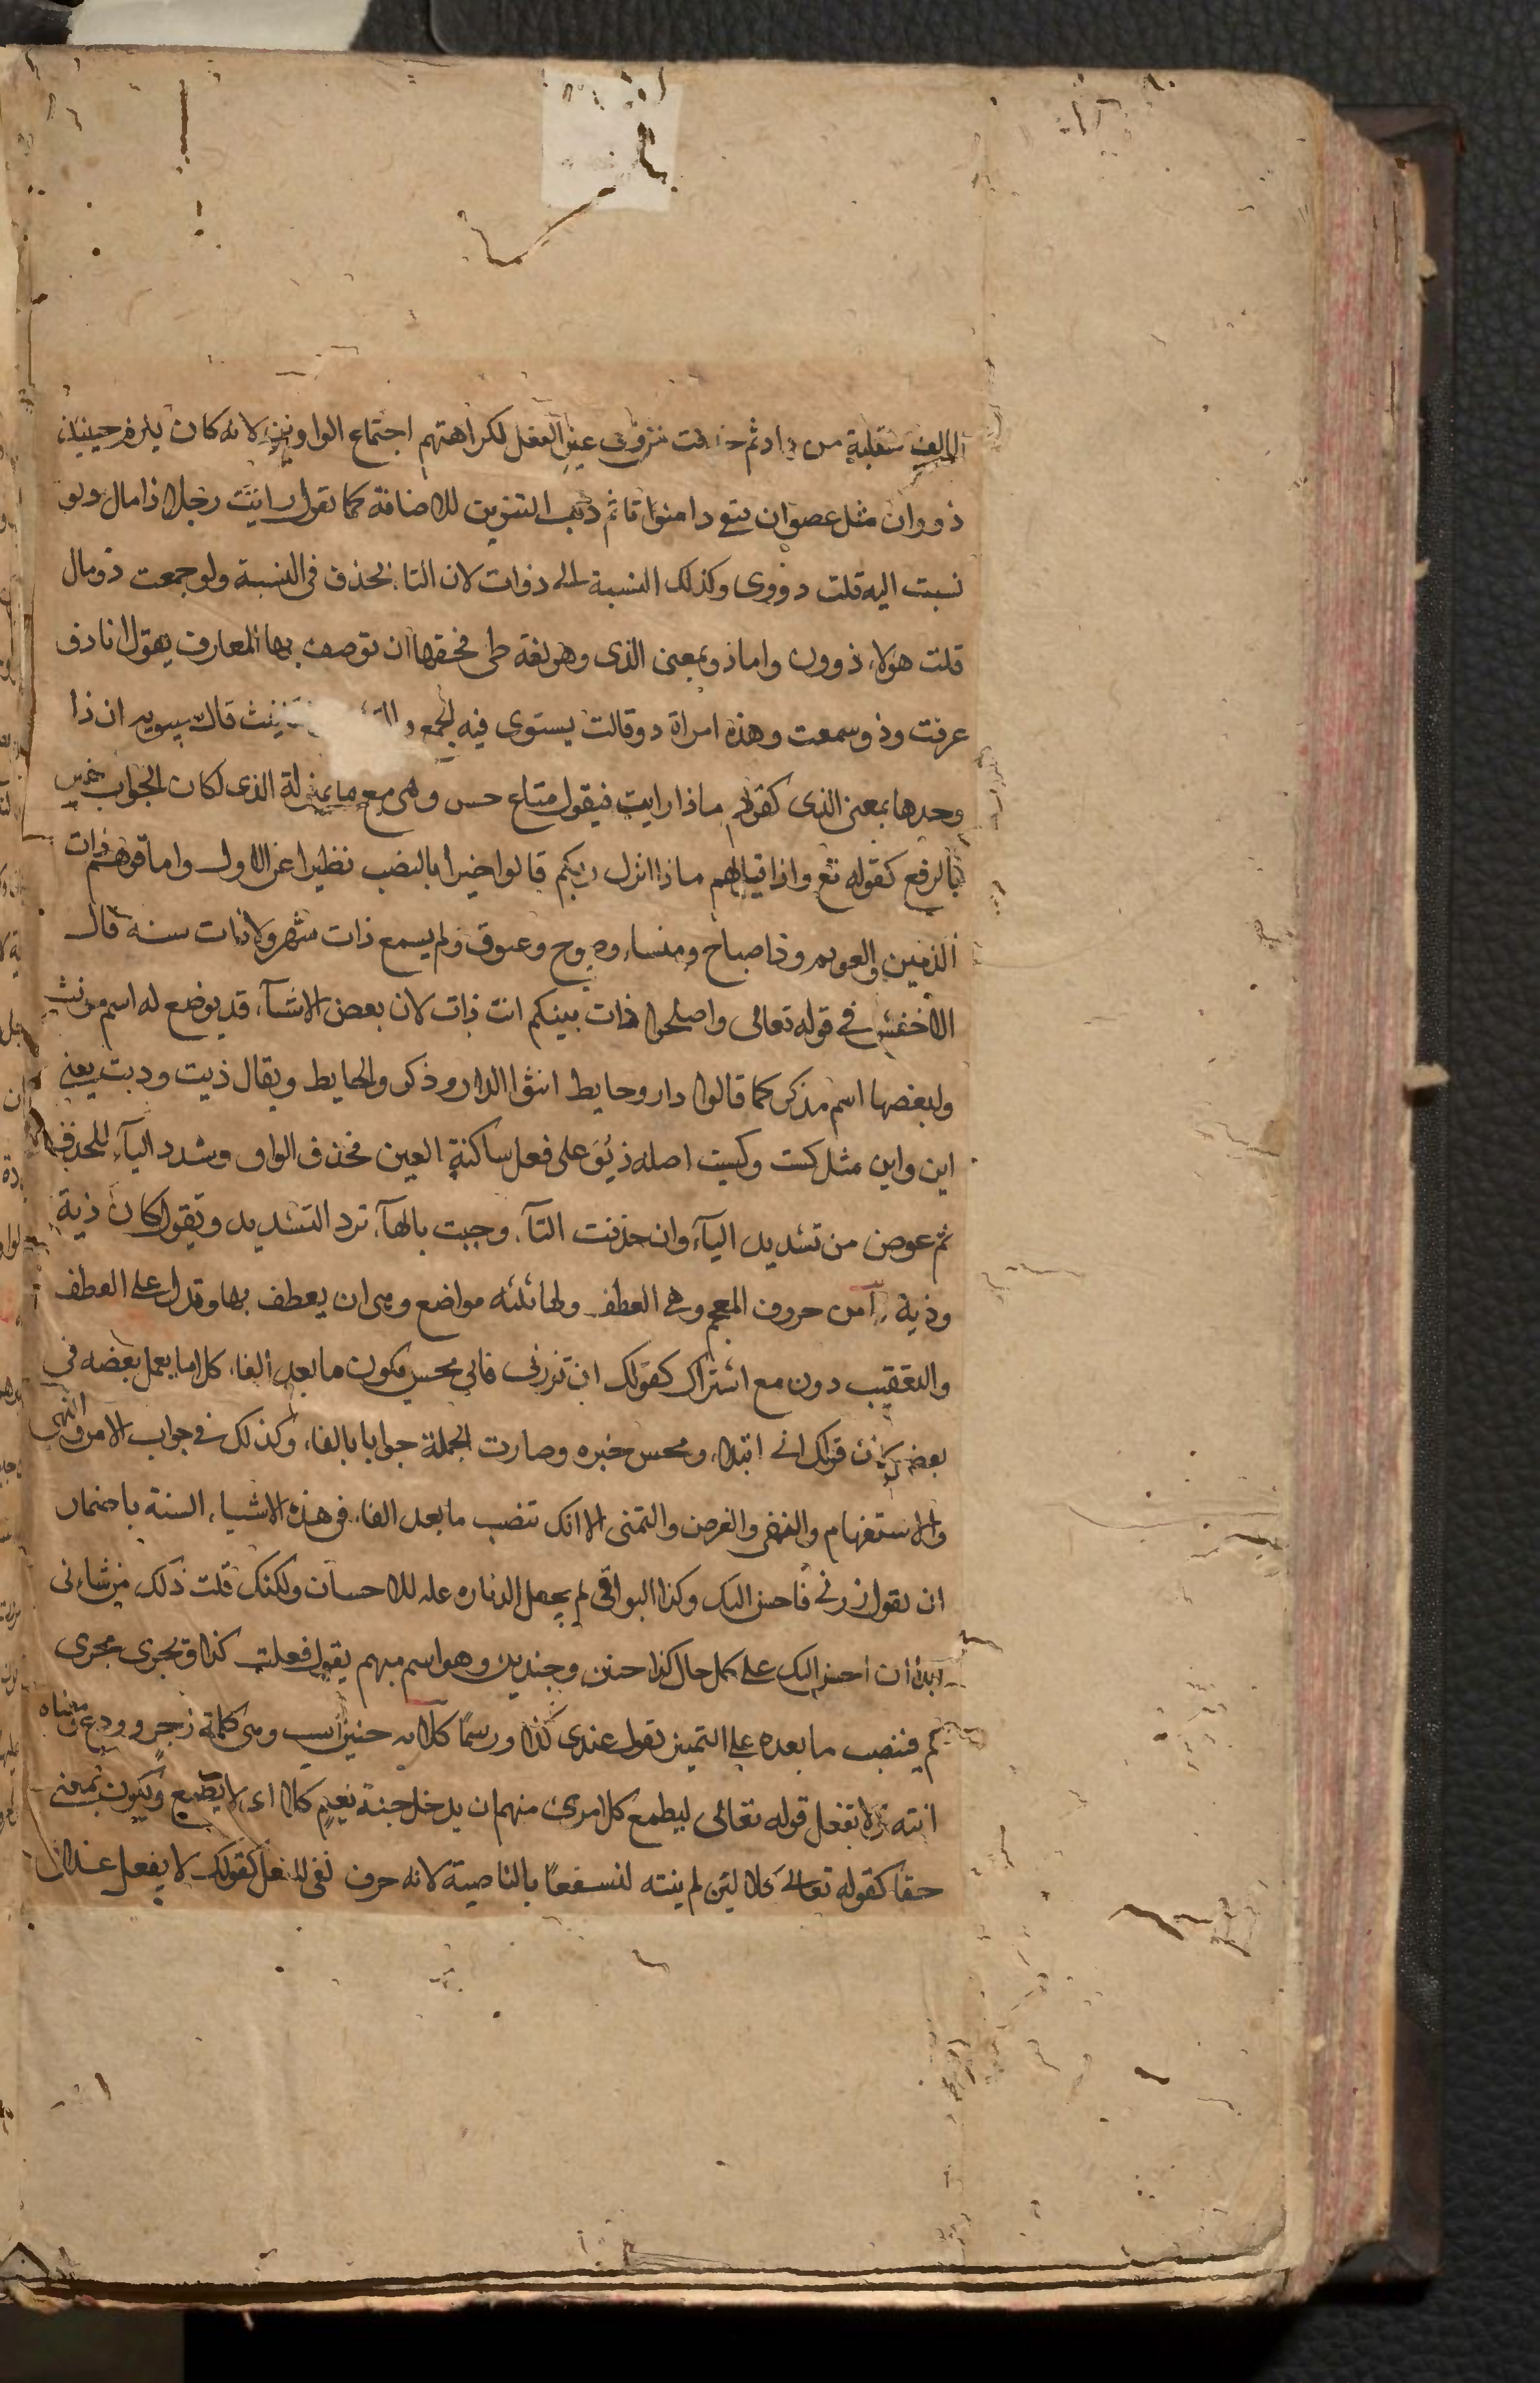 الالف منقلبة من واو ثم حذفت من ذوى عين الفعل لكراهتهم اجتماع الواوين لانه كان يلزم حينئذ
ذووان مثل عصوان فبقى ذا منونا ثم ذهب التنوين للاضافة كما تقول رايت رجلا ذا مال ولو
نسبت اليه قلت ذووى وكذلك النسبة الى ذوات لان التاء تحذف فى النسبة ولو جمعت ذو مال
قلت هولاء ذوون واما ذو بمعنى الذى وهو لغة طى فحقها ان توصف بها المعارف يقول انا ذو
عرفت وذو سمعت وهذه امراة ذو قالت يستوى فيه الجمع و التانيث قال سيبويه ان ذا
وحدها بمعنى الذى كقولهم ماذا رايت فيقول متاع حسن وهى مع ما بمنزلة الذى لكان الجواب خير
بالرفع كقوله تع واذا قيل لهم ماذا انزل ربكم قالوا خيرا بالنصب نظيرا عن الاول واما قولهم ذات
الزمين والعويم وذا صباح ومساء وصبوح وغبوق ولم يسمع ذات شهر ولا ذات سنة قال
الاخفش فى قوله تعالى واصلحوا ذات بينكم انث ذات لان بعض الاشياء قد يوضع له اسم مونث
ولبعضها اسم مذكر كما قالوا دار وحايط انثوا الدار وذكروا الحايط ويقال ذيت وذيت يعنى
اين واين مثل كيت وكيت اصله ذيو على فعل ساكنة العين فحذف الواو وشدد الياء للحذف
ثم عوض من تشديد الياء وان حذفت التاء وجيت بالهاء ترد التشديد وتقول كان ذية
وذية من حروف المعجم وهى العطف ولها ثلثه مواضع وهى ان يعطف بها وتدل على العطف
والتعقيب دون مع اشتراك كقولك ان تزرنى فانى محسن فكون ما بعد الفاء كلاما يعمل بعضه فى
بعض لان قولك انى ابتداء ومحسن خبره وصارت الجملة جوابا بالفاء وكذلك فى جواب الامر والنهى
والاستفهام والنفى والعرض والتمنى الا انك تنصب ما بعد الفاء فى هذه الاشياء الستة باضمار
ان تقول زرنى فاحسن اليك وكذا البواقى لم يجعل الزياره علة للاحسان ولكنك قلت ذلك من شانى
ابدا ان احسن اليك على كل حال كذا وهو اسم مبهم يقول فعلت كذا ويجرى مجرى
كم فينصب ما بعده على التمييز تقول عندى كذا ودرهما كلا وهى كلمة زجر وردع ومعناه
انته ولا تفعل قوله تعالى ليطمع كل امرئ منهم ان يدخل جنة نعيم كلا اى لا يطمع ويكون بمعنى
حقا كقوله تعالى كلا لئن لم ينته لنسفعا بالناصية لانه حرف نفى للفعل كقولك لا يفعل غدا